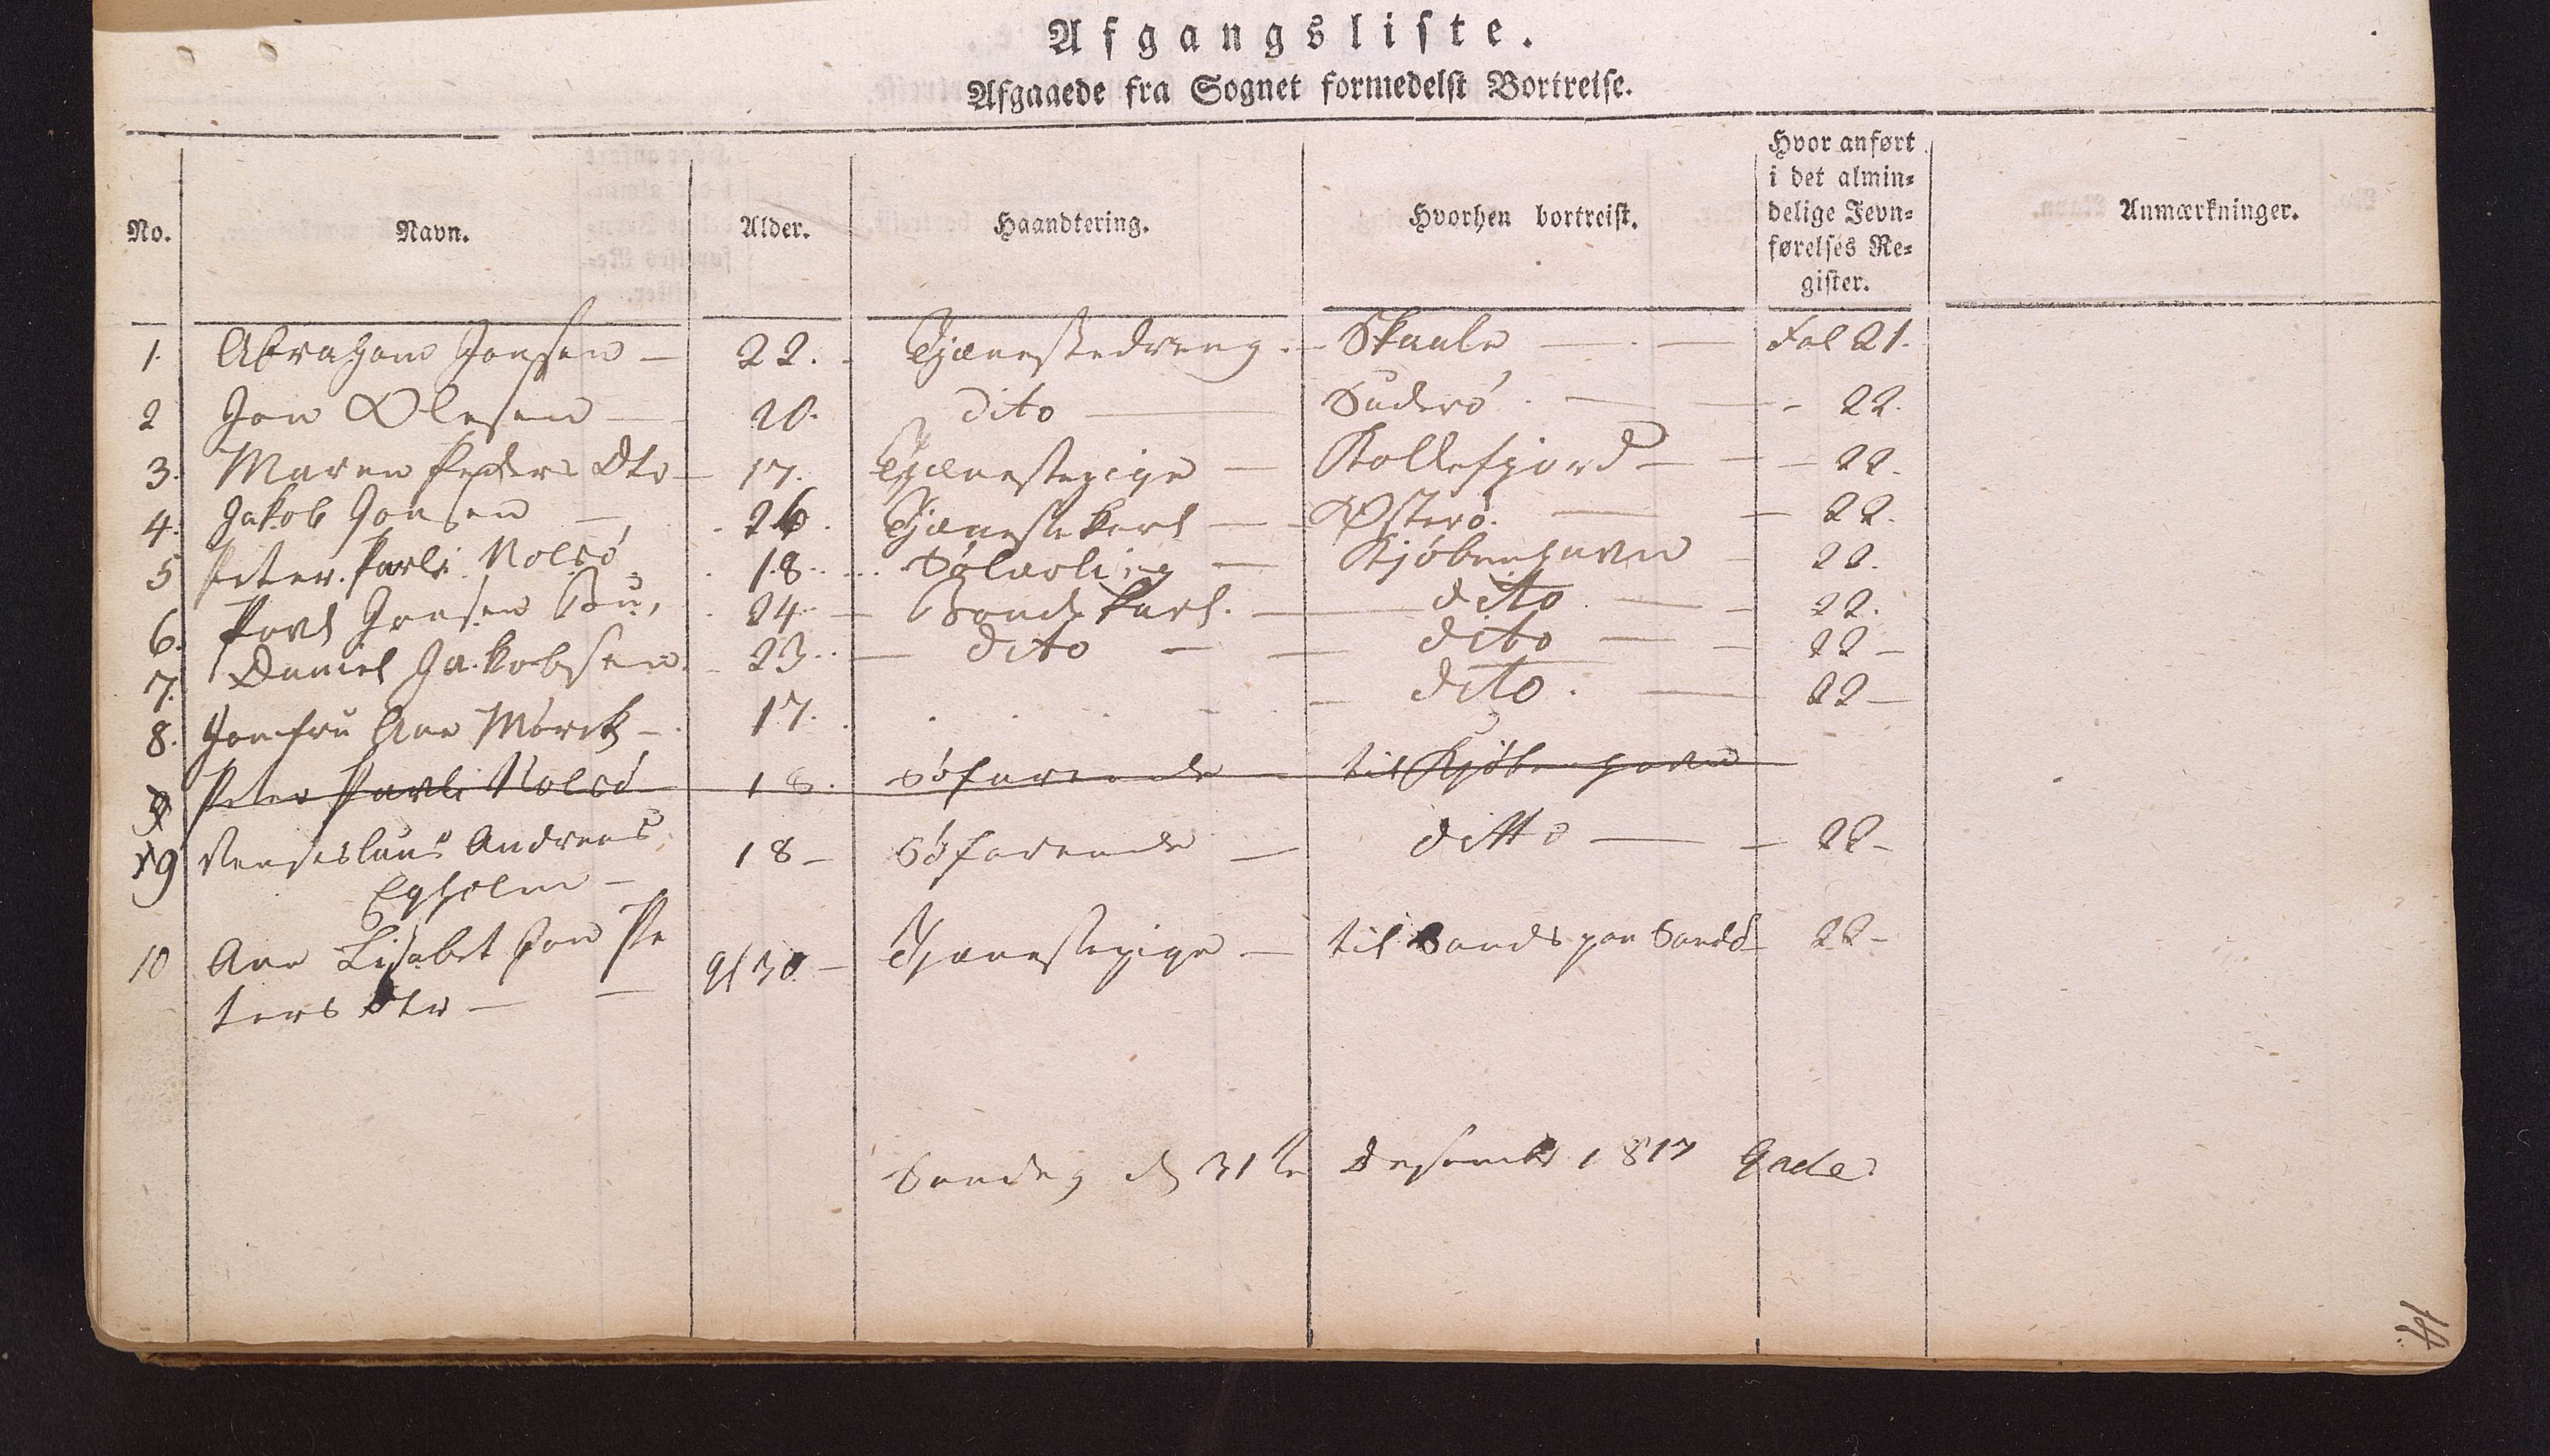 Afgangsliste.
Afgaaede fra Sognet formedelst Bortreise.
No. Navn. Alder. Haandtering. Hvorhen bortreist. Hvor anført i det almin= delige Jevn= førelses Re= gister. Anmærkninger.
1. Abraham Jonsen — 22. Tjænestedreng. — Skaale — Fol 21.
2 Jon Olesen — 20. dito — Suderö. — 22.
3. Maren Peders Dtr — 17. Tjænestepige — Kollefjord — 22.
4. Jakob Jonsen — 26. Tjænestekarl — Österö. — 22.
5 Peter Pavli Nolsö 18. Kjöbenhavn 22.
6. Povl Jonsen 24 — Bondekarl. — dito — 22.
7. Daniel Jakobsen. 23. — dito — dito — 22 —
8. Jomfru Ane Mörck — 17. dito. — 22 —
Peter Pavli Nolsö 18. Söfarende til Kjöbenhavn
9 Andreas 18 — Söfarende — ditto — 22 —
Egholm —
10 Ane Lisabet Jon Pe 30 — Tjænestepige — til Sands paa Sandö 22 —
ters Dtr —
31te Desember 1817